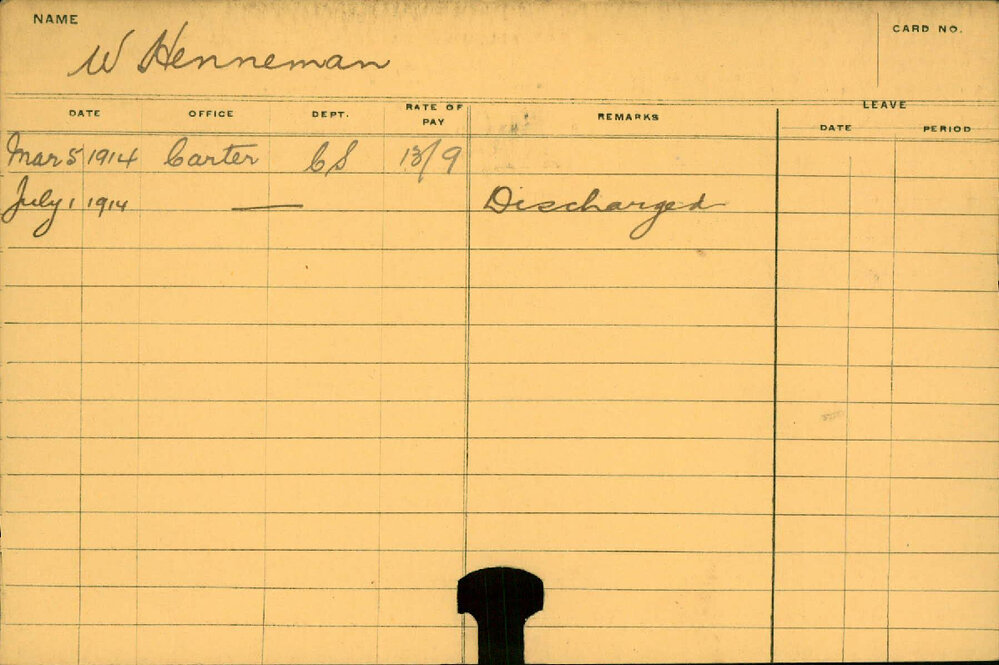 NAME
W Henneman
CARD NO.
DATE OFFICE DEPT. RATE OF PAY REMARKS LEAVE
DATE PERIOD
Mar 5 1914 Carter CS 13/9
July 1 1914 — Discharged